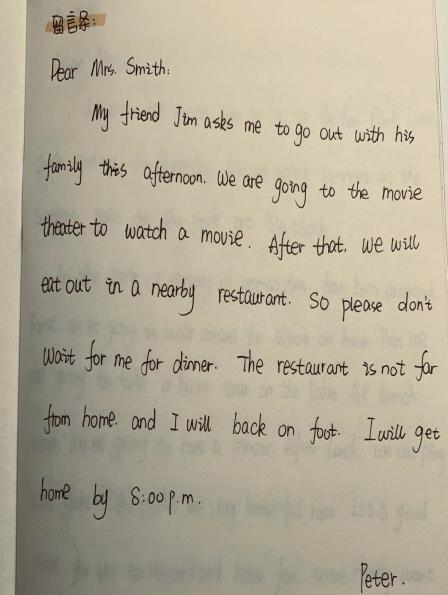 留言条:
Dear Mrs. Smith:
My friend Jim asks me to go out with his
family this afternoon. We are going to the movie
theater to watch a movie. After that, we will
eat out in a nearby restaurant. So please don't
wait for me for dinner. The restaurant is not far
from home. and I will back on foot. I will get
home by 8:00 p.m.
Peter.